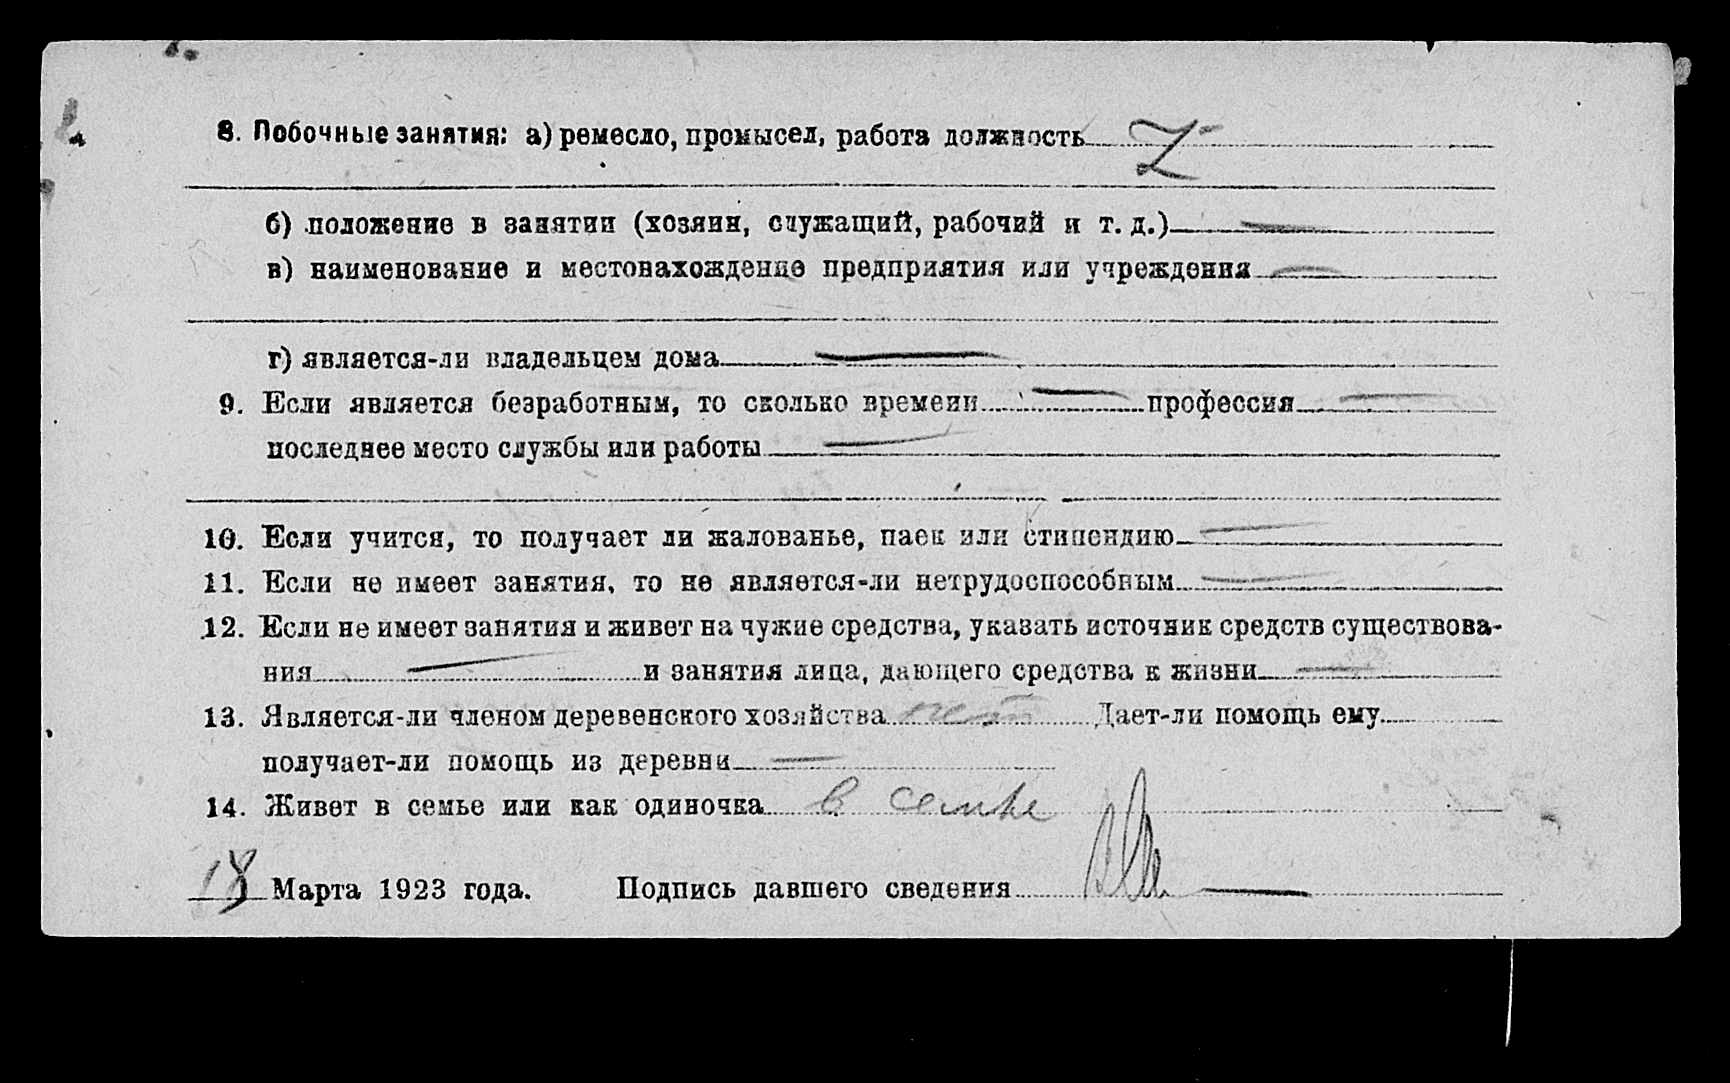 8. Побочные занятия: а) ремесло, промысел, работа должность
б) положение в занятии (хозяин, служащий, рабочий и т. д.) —
в) наименование и местонахождение предприятия или учреждения —
г) является-ли владельцем дома —
9. Если является безработным, то сколько времени — профессия —
последнее место службы или работы —
10. Если учится, то получает ли жалованье, паек или стипендию —
11. Если не имеет занятия, то не является-ли нетрудоспособным —
12. Если не имеет занятия и живет на чужие средства, указать источник средств существова-
ния — и занятия лица, дающего средства к жизни —
13. Является-ли членом деревенского хозяйства нет Дает-ли помощь ему
получает-ли помощь из деревни —
14. Живет в семье или как одиночка в семье
18 Марта 1923 года. Подпись давшего сведения